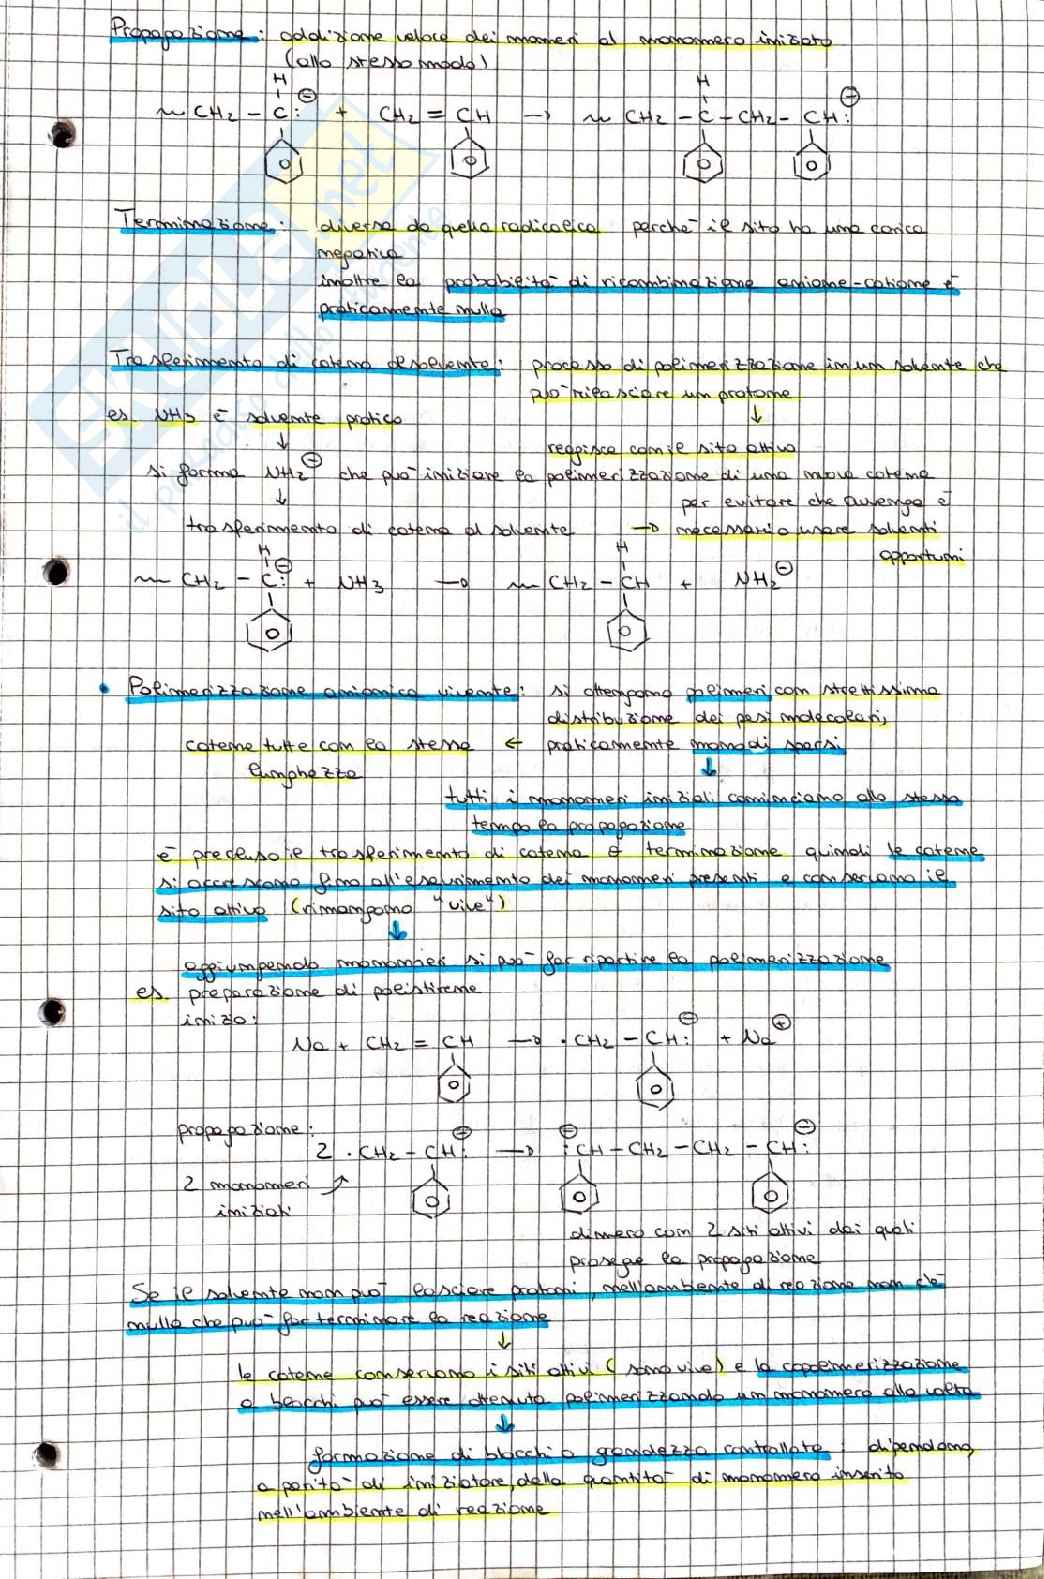 Propagazione: addizione veloce dei monomeri al monomero iniziato
(allo stesso modo)
H
~ CH2 - C:⊖ + CH2 = CH → ~ CH2 - C - CH2 - CH:⊖
H
Terminazione: diversa da quella radicalica perché il sito ha una carica
negativa
inoltre la probabilità di ricombinazione anione-catione è
praticamente nulla
Trasferimento di catena al solvente: processo di polimerizzazione in un solvente che
può rilasciare un protone
↓
es. NH3 è solvente protico
↓
reagisce con il sito attivo
si forma NH2⊖ che può iniziare la polimerizzazione di una nuova catena
↓
per evitare che avvenga è
trasferimento di catena al solvente → necessario usare solventi
opportuni
H
H
~ CH2 - C:⊖ + NH3 → ~ CH2 - CH + NH2⊖
• Polimerizzazione anionica vivente: si ottengono polimeri con strettissima
distribuzione dei pesi molecolari,
catene tutte con la stessa ← praticamente monodispersi
lunghezza
↓
tutti i monomeri iniziali cominciano allo stesso
tempo la propagazione
è precluso il trasferimento di catena e terminazione quindi le catene
si accrescono fino all'esaurimento dei monomeri presenti e conservano il
sito attivo (rimangono "vive")
↓
aggiungendo monomeri si può far ripartire la polimerizzazione
es. preparazione di polistirene
inizio:
Na + CH2 = CH → ·CH2 - CH:⊖ + Na⊕
propagazione:
2 ·CH2 - CH:⊖ → ⊖:CH - CH2 - CH2 - CH:⊖
2 monomeri
iniziali
dimero con 2 siti attivi dai quali
prosegue la propagazione
Se il solvente non può lasciare protoni, nell'ambiente di reazione non c'è
nulla che può far terminare la reazione
↓
le catene conservano i siti attivi (sono vive) e la copolimerizzazione
a blocchi può essere ottenuta polimerizzando un monomero alla volta
↓
formazione di blocchi a grandezza controllata: dipendono,
a parità di iniziatore, dalla quantità di monomero inserito
nell'ambiente di reazione